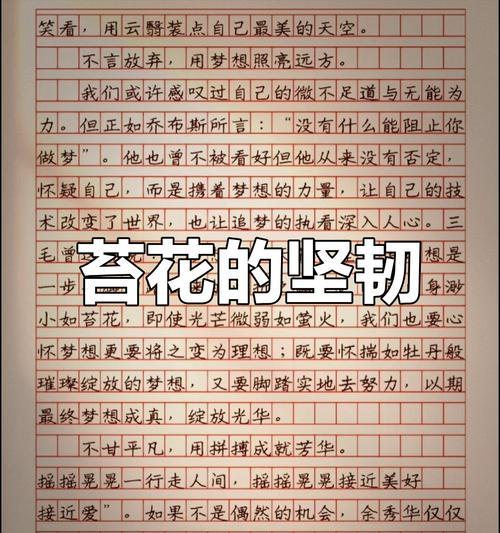 笑看，用云翳装点自己最美的天空。
不言放弃，用梦想照亮远方。
我们或许感叹过自己的微不足道与无能为
力。但正如乔布斯所言：“没有什么能阻止你
做梦”。他也曾不被看好但他从来没有否定，
怀疑自己，而是携着梦想的力量，让自己的技
术改变了世界，也让追梦的执着深入人心。三
毛曾 想是
苔花的坚韧
一步 身渺
小如苔花，即使光芒微弱如萤火，我们也要心
怀梦想更要将之变为理想；既要怀揣如牡丹般
璀璨绽放的梦想，又要脚踏实地去努力，以期
最终梦想成真，绽放光华。
不甘平凡，用拼搏成就芳华。
摇摇晃晃一行走人间，摇摇晃晃接近美好
接近爱”。如果不是偶然的机会，余秀华仅仅